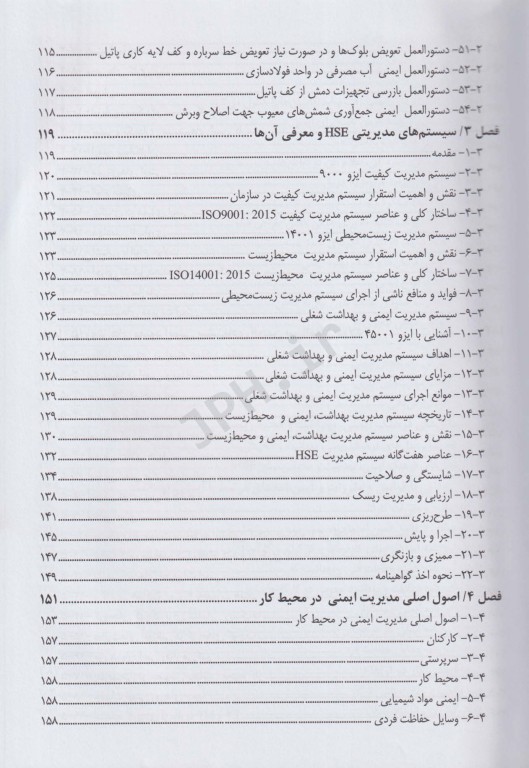 ۲-۵۱- دستورالعمل تعویض بلوک‌ها و در صورت نیاز تعویض خط سرباره و کف لایه کاری پاتیل ................ ۱۱۵
۲-۵۲- دستورالعمل ایمنی آب مصرفی در واحد فولادسازی ................ ۱۱۶
۲-۵۳- دستورالعمل بازرسی تجهیزات دمش از کف پاتیل ................ ۱۱۷
۲-۵۴- دستورالعمل ایمنی جمع‌آوری شمش‌های معیوب جهت اصلاح وبرش ................ ۱۱۸
فصل ۳/ سیستم‌های مدیریتی HSE و معرفی آن‌ها ................ ۱۱۹
۳-۱- مقدمه ................ ۱۱۹
۳-۲- سیستم مدیریت کیفیت ایزو ۹۰۰۰ ................ ۱۲۰
۳-۳- نقش و اهمیت استقرار سیستم مدیریت کیفیت در سازمان ................ ۱۲۱
۳-۴- ساختار کلی و عناصر سیستم مدیریت کیفیت ISO9001: 2015 ................ ۱۲۲
۳-۵- سیستم مدیریت زیست‌محیطی ایزو ۱۴۰۰۱ ................ ۱۲۳
۳-۶- نقش و اهمیت استقرار سیستم مدیریت محیط‌زیست ................ ۱۲۳
۳-۷- ساختار کلی و عناصر سیستم مدیریت محیط‌زیست ISO14001: 2015 ................ ۱۲۵
۳-۸- فواید و منافع ناشی از اجرای سیستم مدیریت زیست‌محیطی ................ ۱۲۶
۳-۹- سیستم مدیریت ایمنی و بهداشت شغلی ................ ۱۲۶
۳-۱۰- آشنایی با ایزو ۴۵۰۰۱ ................ ۱۲۷
۳-۱۱- اهداف سیستم مدیریت ایمنی و بهداشت شغلی ................ ۱۲۸
۳-۱۲- مزایای سیستم مدیریت ایمنی و بهداشت شغلی ................ ۱۲۸
۳-۱۳- موانع اجرای سیستم مدیریت ایمنی و بهداشت شغلی ................ ۱۲۹
۳-۱۴- تاریخچه سیستم مدیریت بهداشت، ایمنی و محیط‌زیست ................ ۱۲۹
۳-۱۵- نقش و عناصر سیستم مدیریت بهداشت، ایمنی و محیط‌زیست ................ ۱۳۰
۳-۱۶- عناصر هفت‌گانه سیستم مدیریت HSE ................ ۱۳۲
۳-۱۷- شایستگی و صلاحیت ................ ۱۳۴
۳-۱۸- ارزیابی و مدیریت ریسک ................ ۱۳۸
۳-۱۹- طرح‌ریزی ................ ۱۴۱
۳-۲۰- اجرا و پایش ................ ۱۴۵
۳-۲۱- ممیزی و بازنگری ................ ۱۴۷
۳-۲۲- نحوه اخذ گواهینامه ................ ۱۴۹
فصل ۴/ اصول اصلی مدیریت ایمنی در محیط کار ................ ۱۵۱
۴-۱- اصول اصلی مدیریت ایمنی در محیط کار ................ ۱۵۳
۴-۲- کارکنان ................ ۱۵۷
۴-۳- سرپرستی ................ ۱۵۷
۴-۴- محیط کار ................ ۱۵۸
۴-۵- ایمنی مواد شیمیایی ................ ۱۵۸
۴-۶- وسایل حفاظت فردی ................ ۱۵۸
JPH.ir